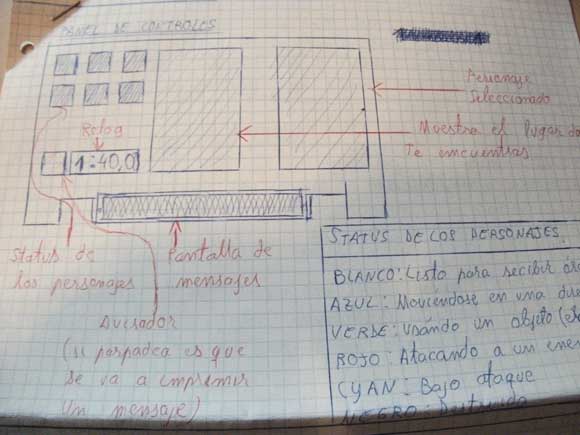 PANEL DE CONTROLES
Personaje
Seleccionado
Reloj
Muestra el lugar do
Te encuentras
1:40,0
Status de
los personajes
Pantalla de
mensajes
Avisador
(si parpadea es que
se va a imprimir
un mensaje)
STATUS DE LOS PERSONAJES
BLANCO: Listo para recibir ór
AZUL: Moviéndose en una dire
VERDE: Usando un objeto (
ROJO: Atacando a un ene
CYAN: Bajo ataque
NEGRO: Destruido